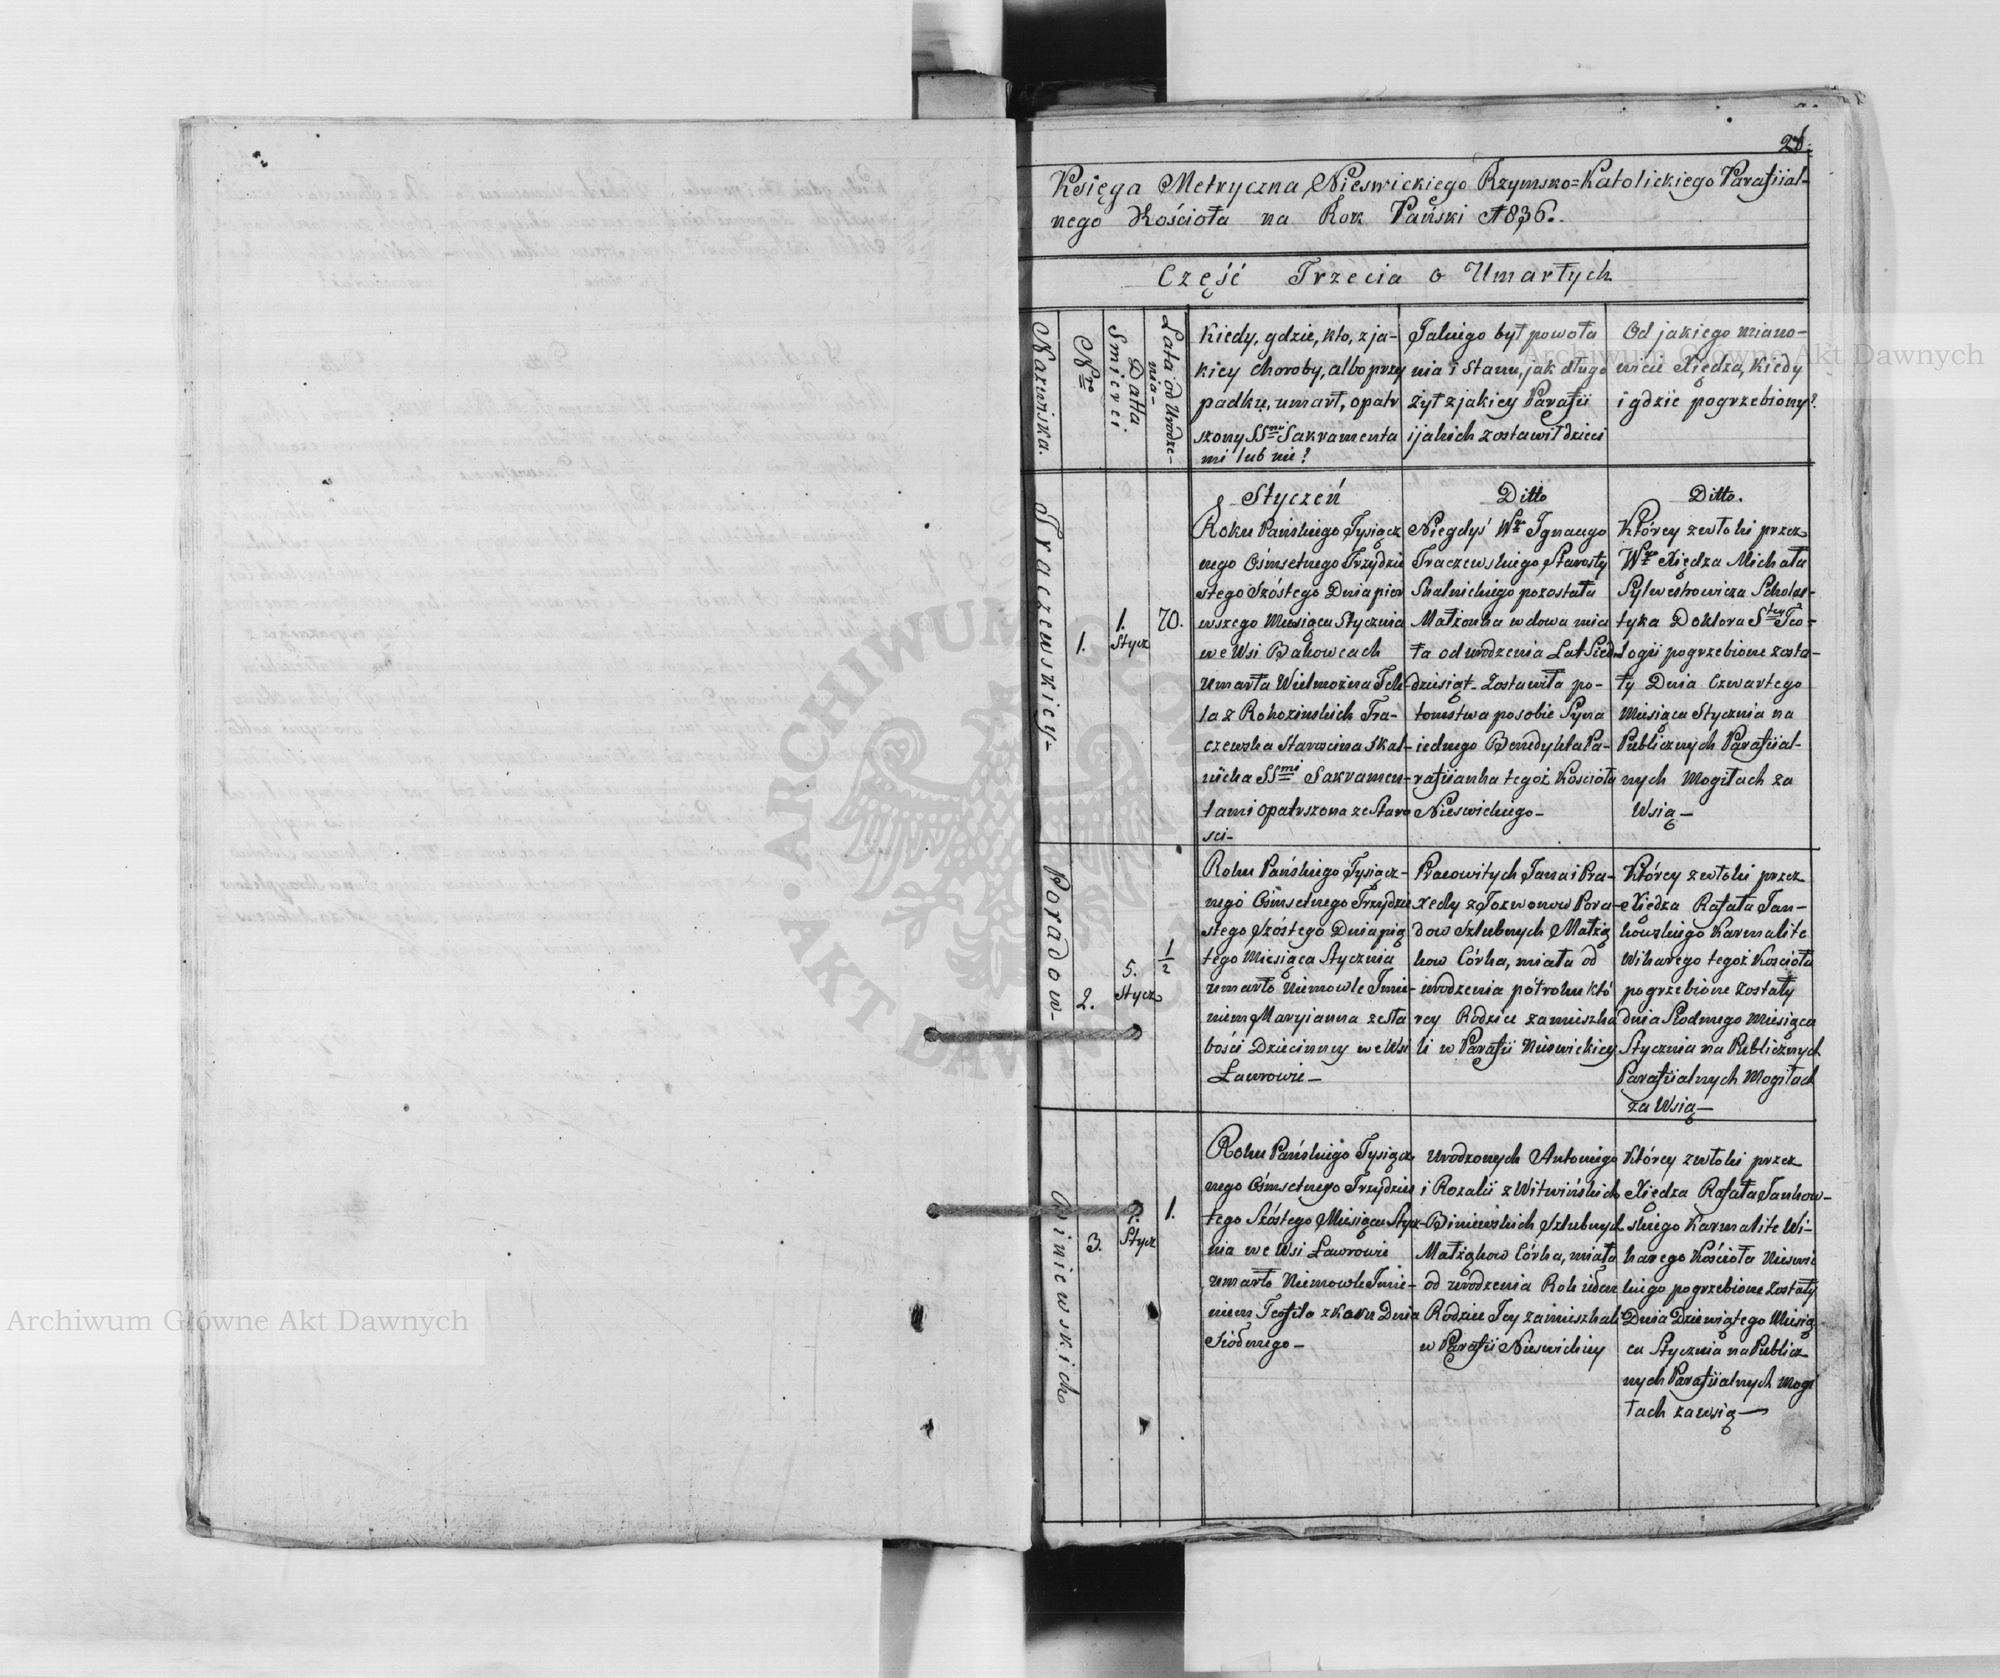 26.
Księga Metryczna Nieswickiego Rzymsko=Katolickiego Parafiial-
nego Kościoła na Rok Pański 1836.
Część Trzecia o Umarłych
Nazwiska.
Nro
Datta
Smierci.
Lata od Urodze-
nia-
Kiedy, gdzie, kto, z ja-
kiey choroby, albo przy
padku, umarł, opatr
szony SSmi Sakramenta
mi lub nie?
Jakiego był powoła
nia i Stanu, jak długo
żył z jakiey Parafii
i jakich zostawił dzieci
Od jakiego miano-
wicie Xiędza, kiedy
i gdzie pogrzebiony?
Traczewskiey-
1.
1.
Stycz
70.
Styczeń
Roku Pańskiego Tysiącz
nego Ośmsetnego Trzydzie
stego Szóstego Dnia pier
wszego Miesiąca Stycznia
we Wsi Bakowcach
Umarła Wielmożna Tekl-
la z Rohozinskich Tra-
czewska Starościna Skal-
nicka SSmi Sakramen-
tami opatrszona ze Staro
sci-
Ditto
Niegdyś Wgo Ignacego
Traczewskiego Starosty
Skalnickiego pozostała
Małżonka wdowa mia
ła od urodzenia Lat Sied-
dziesiąt. Zostawiła po-
tomstwa po sobie Syna
iednego Benedykta Pa-
rafiianka tegoż Kościoła
Nieswickiego-
Ditto.
Którey zwłoki przez
Wgo Xiędza Michała
Sylwestrowicza Scholas-
tyka Doktora Stey Teo-
logii pogrzebione zosta-
ły Dnia Czwartego
Miesiąca Stycznia na
Publicznych Parafiial-
nych Mogiłach za
Wsią-
Poradow-
2.
5.
Stycz
1/2
Roku Pańskiego Tysiącz-
nego Ośmsetnego Trzydzie
stego Szóstego Dnia pią
tego Miesiąca Stycznia
umarło Niemowle Imie-
niem Maryianna ze sła
bości Dziecinney we Wsi
Ławrowie-
Pracowitych Jana i Pra-
xedy z Jozwonow Pora-
dow Szlubnych Małżą
kow Córka, miała od
urodzenia półroku któ
rey Rodzice zamieszka
li w Parafii Nieswickiey
Którey zwłoki przez
Xiedza Rafała Jan-
kowskiego Karmalite
Wikarego tegoż Kościoła
pogrzebione zostały
dnia Siodmego Miesiąca
Stycznia na Publicznych
Parafiialnych Mogiłach
za Wsią-
Biniewskich
3.
7.
Stycz
1.
Roku Pańskiego Tysiącz
nego Ośmsetnego Trzydzies
tego Szóstego Miesiąca Stycz-
nia we Wsi Ławrowie
umarło Niemowle Imie-
niem Teofila z Koru Dnia
Siódmego-
Urodzonych Antoniego
i Rozalii z Witwińskich
Biniewskich Szlubnych
Małżąkow Córka, miała
od urodzenia Rok ieden
Rodzice Jey zamieszkali
w Parafii Nieswickiey
Którey zwłoki przez
Xiedza Rafała Jankow-
skiego Karmalite Wi-
karego Kościoła Nieswic
kiego pogrzebione zostały
Dnia Dziewiątego Miesią
ca Stycznia na Publicz
nych Parafiialnych Mogi
łach za wsią-
Archiwum Główne Akt Dawnych
Archiwum Główne Akt Dawnych